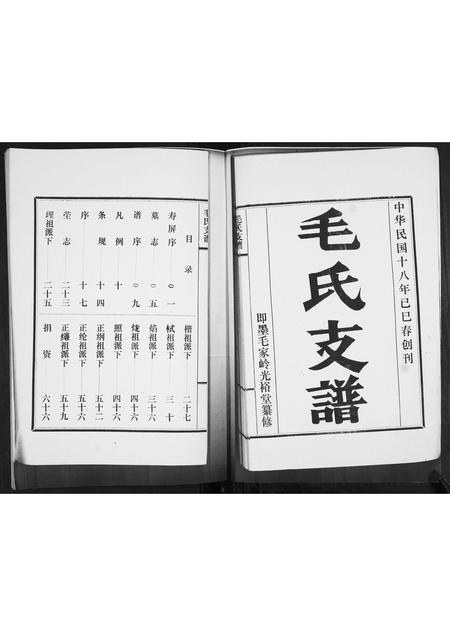 中华民国十八年已巳春创刊
毛氏支譜
即墨毛家岭光裕堂纂修
毛氏支谱
毛氏支谱
目录
寿屏序 ○一
墓志 ○五
谱序 ○九
凡例 十
条规 十四
序 十七
茔志 二十三
理祖派下 二十五
楷祖派下 二十七
栻祖派下 三十
焰祖派下 三十六
烻祖派下 四十六
照祖派下 四十六
正纲祖派下 五十二
正纶祖派下 五十六
正繡祖派下 五十九
捐资 六十六